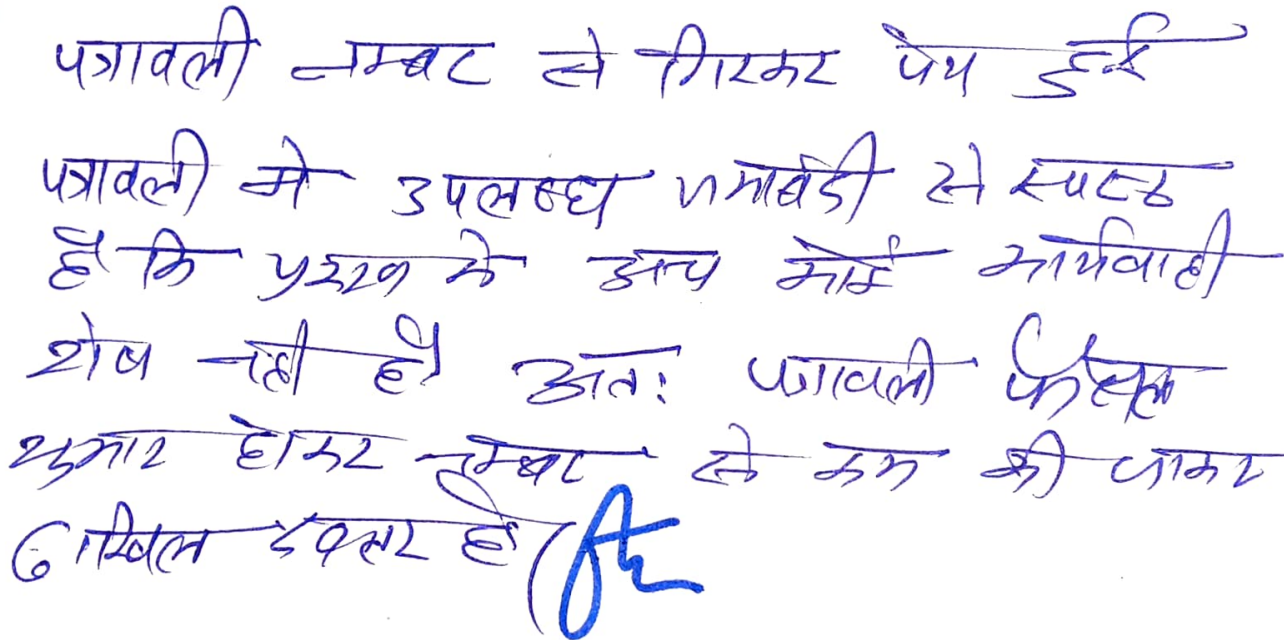 पत्रावली नम्बर से गिरकर पेश हुई
पत्रावली मे उपलब्ध जमाबंदी से स्पष्ट
है कि प्रकरण मे अन्य कोई कार्यवाही
शेष नही है। अतः पत्रावली फैसल
शुमार होकर नम्बर से कम की जाकर
दाखिल दफ्तर हो।